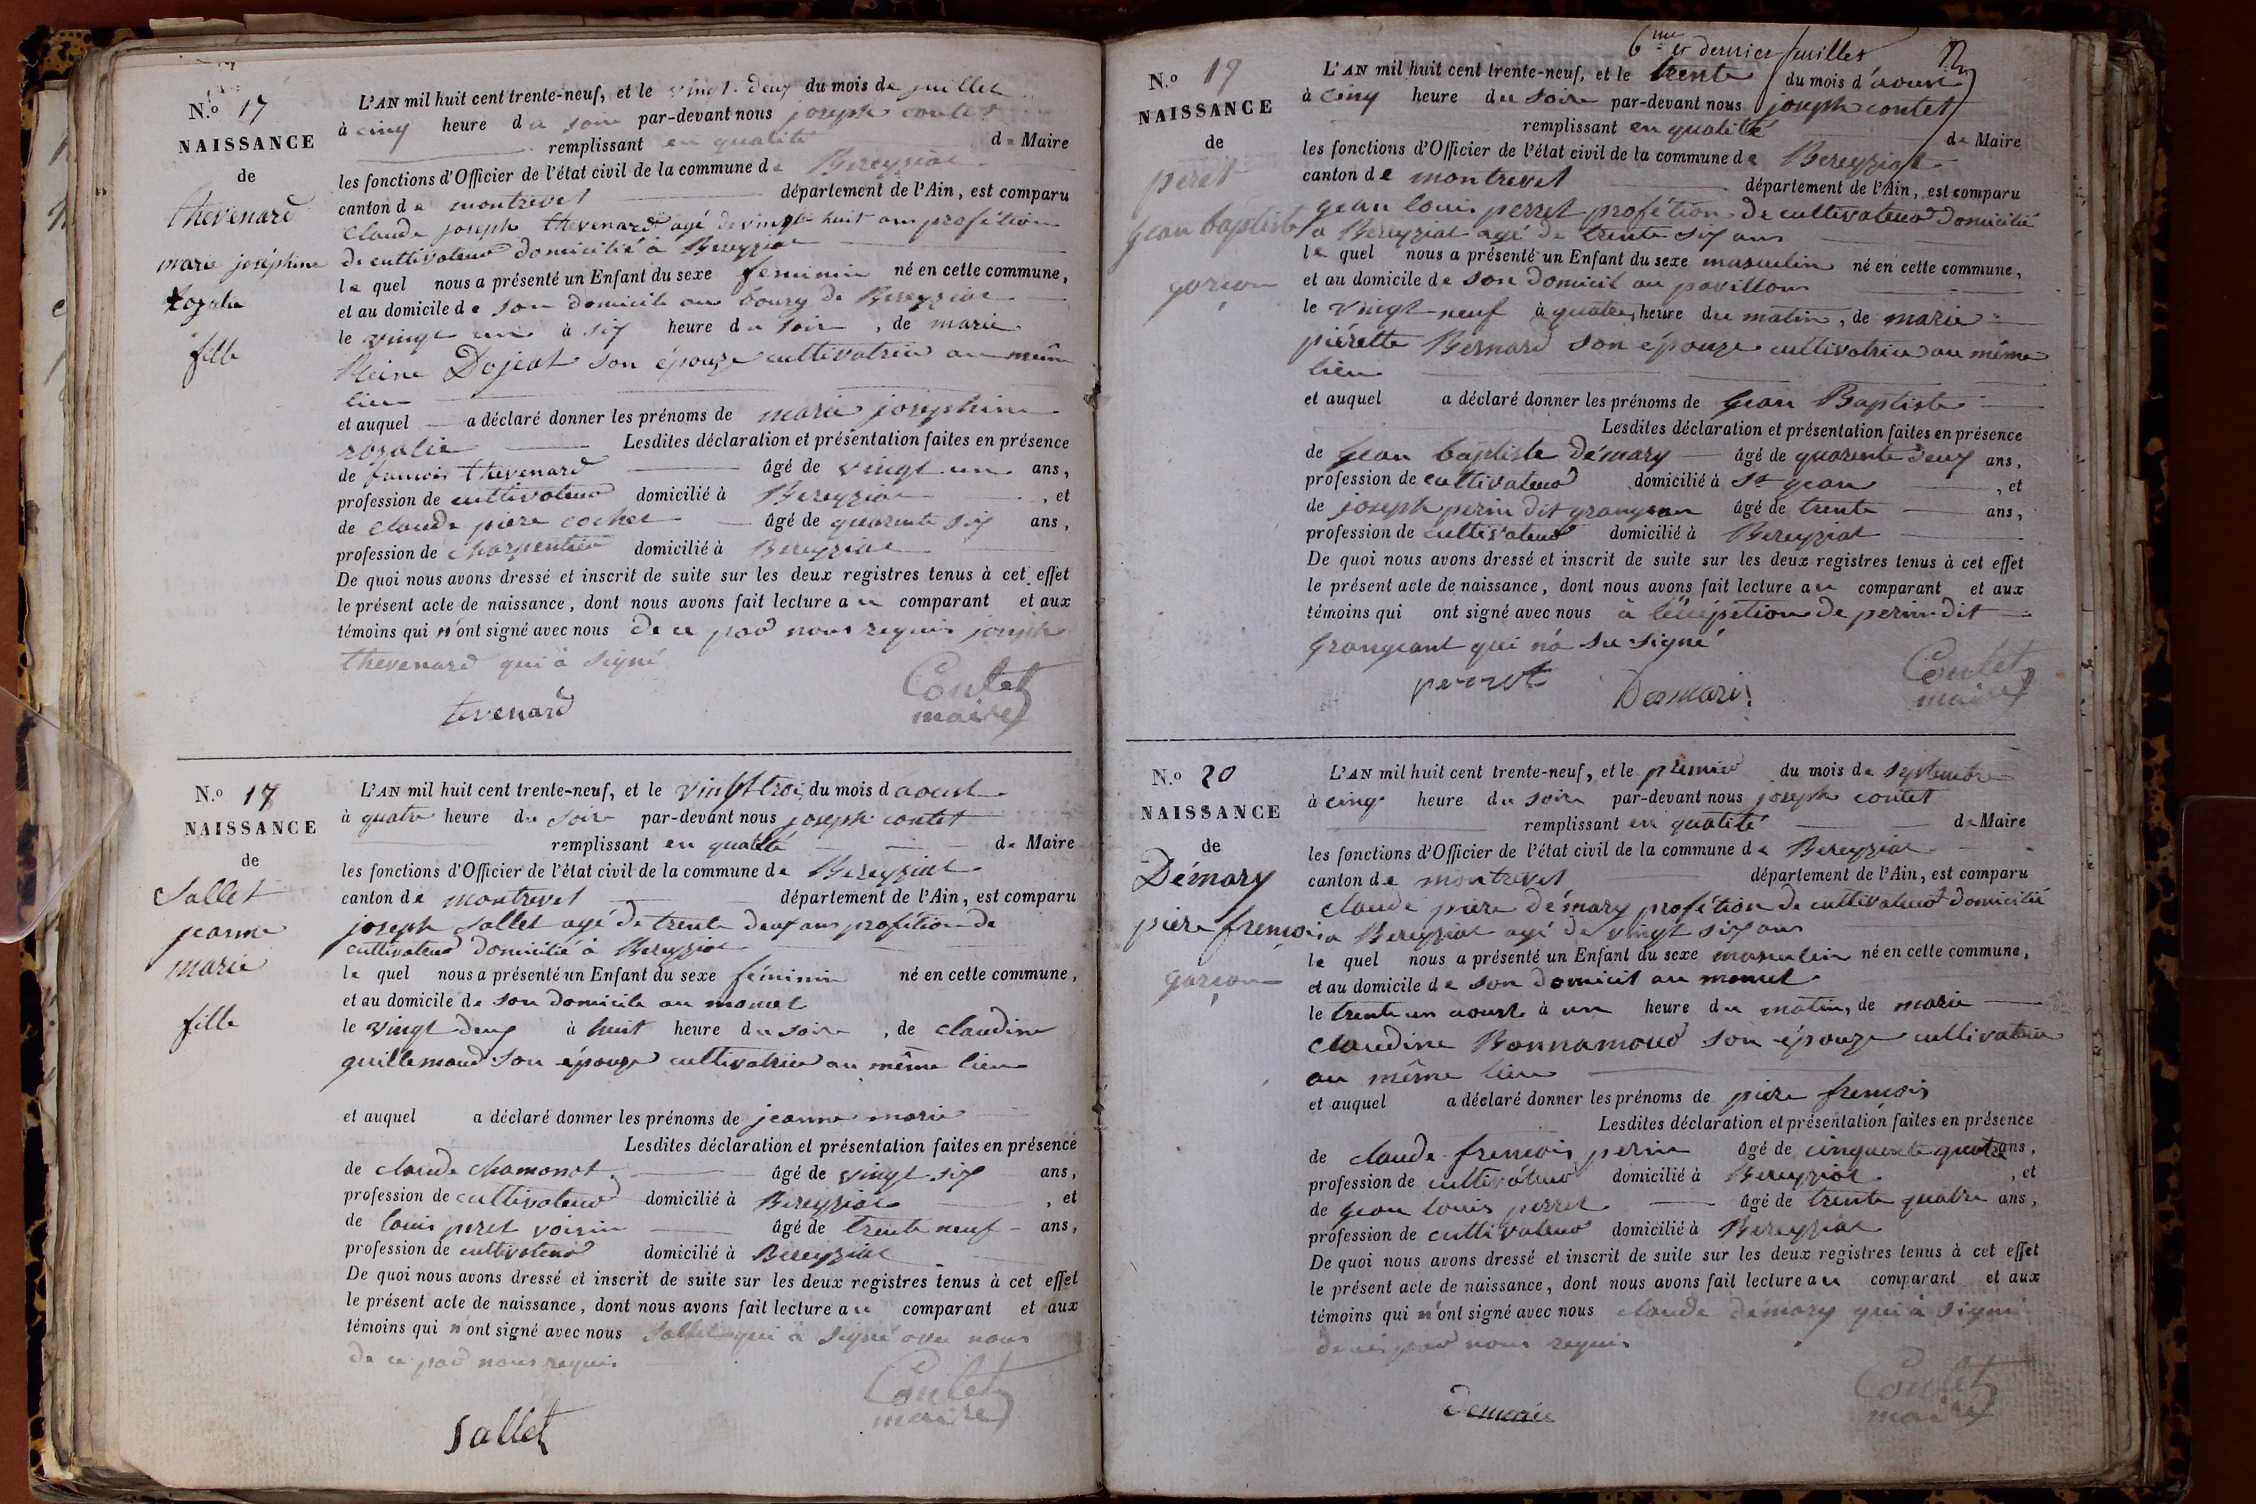 N.o 17
NAISSANCE
de
thevenard
marie joséphine
rozalie
fille
L'AN mil huit cent trente-neuf, et le vingt-deux du mois de juillet
à cinq heure du soir par-devant nous joseph contet
remplissant en qualité de Maire
les fonctions d'Officier de l'état civil de la commune de Bereyziat
canton de montrevel département de l'Ain, est comparu
claude joseph thevenard agé de vingt huit ans profétion
de cultivateur domicilié à Bereyziat
le quel nous a présenté un Enfant du sexe feminin né en cette commune,
et au domicile de son domicile au bourg de Bereyziat
le vingt un à six heure du soir, de marie
Reine Dojeat son épouze cultivatrice au même
lieu
et auquel a déclaré donner les prénoms de marie josephine
rozalie Lesdites déclaration et présentation faites en présence
de francois thevenard âgé de vingt un ans,
profession de cultivateur domicilié à Bereyziat, et
de claude piere cochet âgé de quarente six ans,
profession de charpentier domicilié à Bereyziat
De quoi nous avons dressé et inscrit de suite sur les deux registres tenus à cet effet
le présent acte de naissance, dont nous avons fait lecture au comparant et aux
témoins qui n'ont signé avec nous de ce par nous requis joseph
thevenard qui à signé
tevenard
Contet
maire
N.o 18
NAISSANCE
de
Sallet
jeanne
marie
fille
L'AN mil huit cent trente-neuf, et le vingt trois du mois d aoust
à quatre heure du soir par-devant nous joseph contet
remplissant en qualité de Maire
les fonctions d'Officier de l'état civil de la commune de Bereyziat
canton de montrevel département de l'Ain, est comparu
joseph sallet agé de trente deux ans profétion de
cultivateur domicilié à Bereyziat
le quel nous a présenté un Enfant du sexe féminin né en cette commune,
et au domicile de son domicile au
le vingt deux à huit heure du soir, de claudine
guillemaud son épouze cultivatrice au même lieu
et auquel a déclaré donner les prénoms de jeanne marie
Lesdites déclaration et présentation faites en présence
de claude chamonot âgé de vingt six ans,
profession de cultivateur domicilié à Bereyziat, et
de louis peret voisin âgé de trente neuf ans,
profession de cultivateur domicilié à Bereyziat
De quoi nous avons dressé et inscrit de suite sur les deux registres tenus à cet effet
le présent acte de naissance, dont nous avons fait lecture au comparant et aux
témoins qui n'ont signé avec nous sallet qui à signé avec nous
de ce par nous requis
Sallet
Contet
maire
6me et dernier feuillet
N.o 19
NAISSANCE
de
peret
gean baptiste
garçon
L'AN mil huit cent trente-neuf, et le trente du mois d'aoust
à cinq heure du soir par-devant nous joseph contet
remplissant en qualité de Maire
les fonctions d'Officier de l'état civil de la commune de Bereyziat
canton de montrevel département de l'Ain, est comparu
gean louis perret profétion de cultivateur domicilié
a Bereyziat agé de trente six ans
le quel nous a présenté un Enfant du sexe masculin né en cette commune,
et au domicile de son domicil au pavillons
le vingt neuf à quatre heure du matin, de marie
piérette Bernard son épouze cultivatrice au même
lieu
et auquel a déclaré donner les prénoms de gean Baptiste
Lesdites déclaration et présentation faites en présence
de gean baptiste démary âgé de quarente deux ans,
profession de cultivateur domicilié à St gean, et
de joseph perin dit grangean âgé de trente ans,
profession de cultivateur domicilié à Bereyziat
De quoi nous avons dressé et inscrit de suite sur les deux registres tenus à cet effet
le présent acte de naissance, dont nous avons fait lecture au comparant et aux
témoins qui ont signé avec nous à de perin dit
grangeant qui n'a su signé
perret
Demari
Contet
maire
N.o 20
NAISSANCE
de
Démary
piere francois
garçon
L'AN mil huit cent trente-neuf, et le premier du mois de septembre
à cinq heure du soir par-devant nous joseph contet
remplissant en qualité de Maire
les fonctions d'Officier de l'état civil de la commune de Bereyziat
canton de montrevel département de l'Ain, est comparu
claude piere démary profétion de cultivateur domicilié
a Bereyziat agé de vingt six ans
le quel nous a présenté un Enfant du sexe masculin né en cette commune,
et au domicile de son domicil au
le trente un aoust à un heure du matin, de marie
claudine Bonnamour son épouze cultivatrice
au même lieu
et auquel a déclaré donner les prénoms de piere francois
Lesdites déclaration et présentation faites en présence
de claude francois perin âgé de cinquente quatre ans,
profession de cultivateur domicilié à Bereyziat, et
de gean louis perret âgé de trente quatre ans,
profession de cultivateur domicilié à Bereyziat
De quoi nous avons dressé et inscrit de suite sur les deux registres tenus à cet effet
le présent acte de naissance, dont nous avons fait lecture au comparant et aux
témoins qui n'ont signé avec nous claude demary qui à signé
de ce par nous requis
Contet
maire